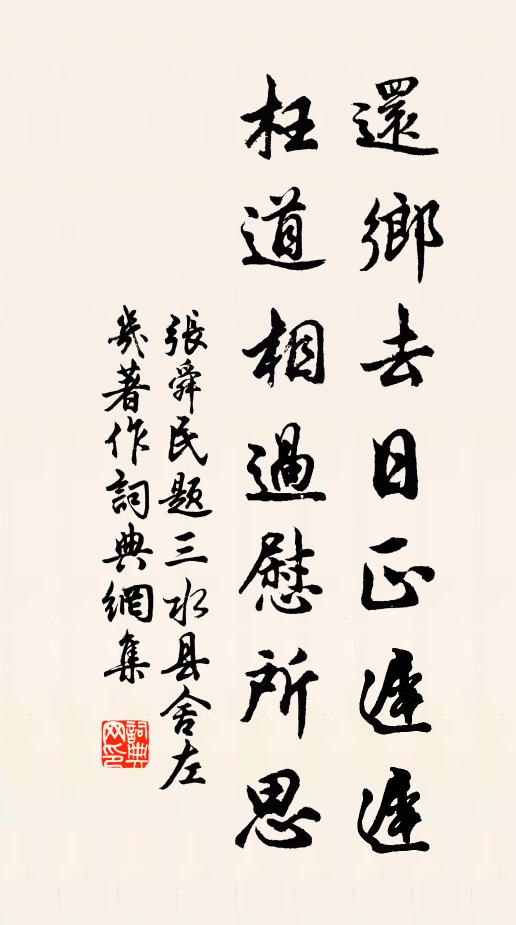 還鄉去日正遲遲
枉道相過慰所思
張舜民題三水县舍左
幾著作詞典網集
詞典
网印